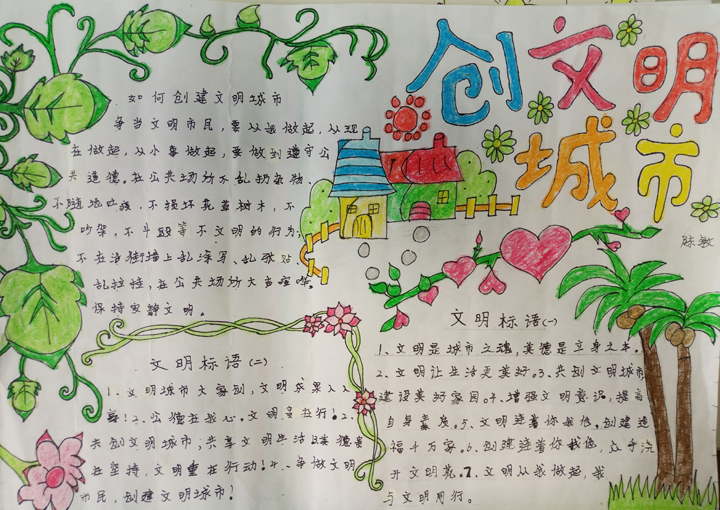 创文明
城市
如何创建文明城市
争当文明市民，要从我做起，从现
在做起，从小事做起，要做到遵守公
共道德。在公共场所不乱扔杂物、
不随地吐痰，不损坏花草树木，不
吵架，不斗殴等不文明的行为，
不在沿街墙上乱涂写、乱张贴
乱拉挂，在公共场所大声喧哗。
保持安静文明。
文明标语(二)
1、文明城市大家创，文明成果人人
享！2、公德在我心，文明在行！
共创文明城市，共享文明生活
在坚持，文明重在行动！4、争做文明
市民，创建文明城市！
文明标语(一)
1、文明是城市之魂，美德是立身之本。
2、文明让生活更美好。3、共创文明城市
建设美好家园。4、增强文明意识，提高
自身素质。5、文明连着你我他，创建造
福千万家。6、创建连着你我他，众手浇
开文明花。7、文明从我做起，我
与文明同行。